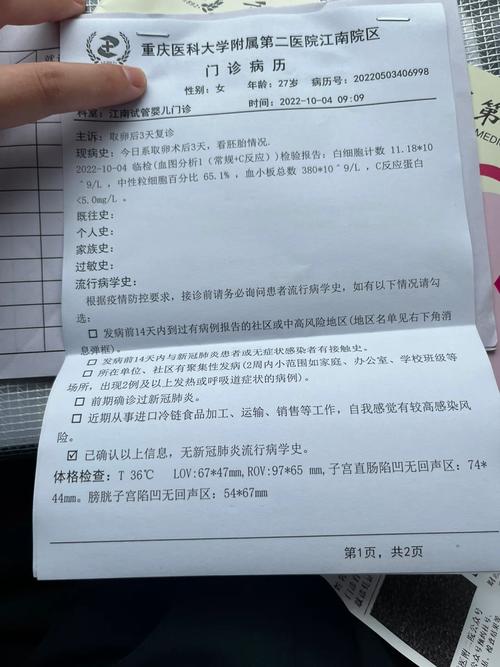 重庆医科大学附属第二医院江南院区
门诊病历
性别：女 年龄：27岁 病历号：20220503406998
科室：江南试管婴儿门诊 时间：2022-10-04 09:09
主诉：取卵后3天复诊
现病史：今日系取卵术后3天，看胚胎情况.
2022-10-04 临检(血图分析1（常规+C反应）)检验报告：白细胞计数 11.18*10
^9/L ，中性粒细胞百分比 65.1% ，血小板总数 380*10^9/L ，C反应蛋白
<5.0mg/L 。
既往史：
个人史：
家族史：
过敏史：
流行病学史：
根据疫情防控要求，接诊前请务必询问患者流行病学史，如有以下情况请勾
选：
□ 发病前14天内到过有病例报告的社区或中高风险地区(地区名单见右下角消
息弹框)。
□ 发病前14天内与新冠肺炎患者或无症状感染者有接触史。
□ 所在单位、社区有聚集性发病(2周内小范围如家庭、办公室、学校班级等
场所，出现2例及以上发热或呼吸道症状的病例)。
□ 前期确诊过新冠肺炎。
□ 近期从事进口冷链食品加工、运输、销售等工作，自我感觉有较高感染风
险。
☑ 已确认以上信息，无新冠肺炎流行病学史。
体格检查：T 36℃ LOV:67*47mm,ROV:97*65 mm,子宫直肠陷凹无回声区：74*
44mm。膀胱子宫陷凹无回声区：54*67mm
第1页，共2页
第
MEDIC